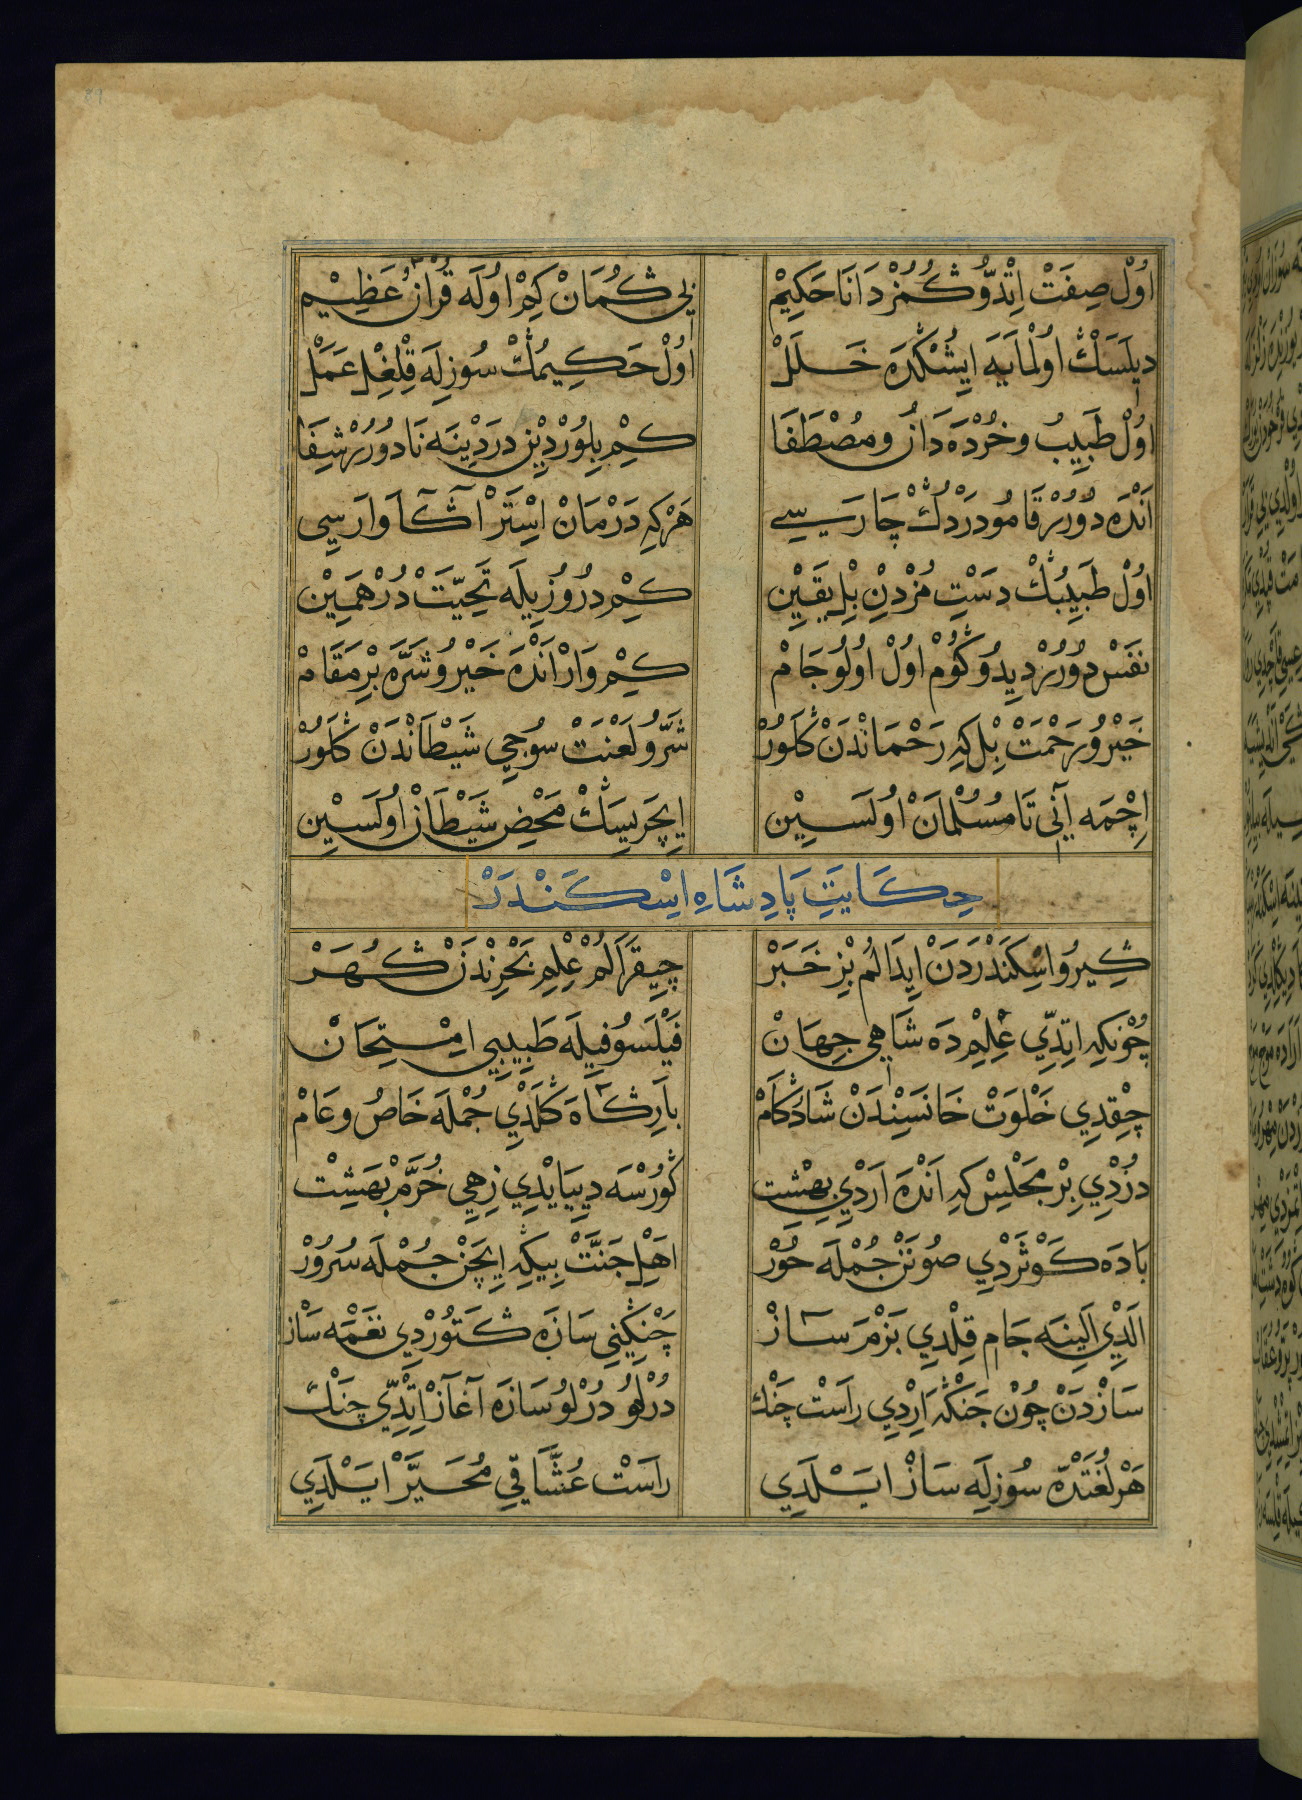 اُولْ صِفَتْ اِتْدّوُڭُمُزْ دَانَا حَكِيْمْ بِي كُمَانْ كِمْ اوُلَه قُرْآنُ عَظِيْمِ
دِيلَسَڭْ اوُلْمَايَه اِيشُڭْدَه خَلَلْ اوُلْ حَكِيمُڭْ سُوزِلَه قِلْغِلْ عَمَلْ
اوُلْ طَبِيبُ وخُرْدَه دَانُ ومُصْطَفَا كِمْ بِلُوُرْدِيْنِ دَرْدِينَه نَا دوُرُرْ شِفَا
اَنْدَه دوُرُرْ قَامُو دَرْدُڭْ چَارَسِي هَرْكِه دَرْمَانْ اِسْتَرْ آڭَا وَارَسِي
اوُلْ طَبِيبُڭْ دَسْتِ مُزْدِنْ بِلْ يَقِيْنِ كِمْ دُرُوزِيلَه تَحِيَّتْ دُرْ هَمِيْنْ
نَفَسْ دوُرُرْ دِيدُوڭُوُمْ اوُلْ اوُلُو جَامْ كِمْ وَارْ اَنْدَه خَيْرُو شَرَّه بِرْ مَقَامْ
خَيْرُو رَحْمَتْ بِلْ كِه رَحْمَانْدَنْ ڭَلُورْ شَرُّو لَعْنَتْ سُوجِي شَيْطَانْدَنْ ڭَلُورْ
اِچْمَه آنِي تَا مُسُلْمَانْ اوُلَسِيْنِ اِيچَرِيسَڭْ مَحْضِ شَيْطَانْ اوُلَسِيْنِ
حِكَايَتِ پَادِشَاهِ اِسْكَنْدَرْ
ڭِيرُو اسْكَنْدَرْدَنْ اِيدَالُمْ بِزْ خَبَرْ چِيقَرَالُمْ عِلْمِ بَحْرِنْدَنْ ڭُهَرْ
چُونكِه اِتِدِّي عِلِمْدَه شَاهِي جِهَانْ فَيْلَسُوفِيلَه طَبِيبِي اِمْتِحَانْ
چِقِدِي خَلْوَتْ خَانَسِنْدَنْ شَادْكَامْ بَارِڭَاهَ ڭَلَدْيِ جُمْلَه خَاصُ وعَامْ
دُزْدِي بِرْ مَجْلِسْ كِه اَنْدَه اَرْدِيِ بِهِشِت ڭُورْسَه دِيِيَايْدِي زِهِي خُرَّمْ بَهِشِتْ
بَادَه كَوْثَرْدِي صُونَنْ جُمْلَه حُوْر اَهْلِ جَنَّتْ بِيڭِه اِيچَنْ جُمْلَه سُرُورْ
اَلَدِي اَلِينَه جَامِ قِلْدِي بَزْمَ سَازْ چَنِڭِنِي سَازَه ڭَتُورْدِي نَغَمْه سَاز
سَازْدَنْ چُونْ جَنْكَه اِرْدِي رَاسْتْ چَنْك دُرْلُو دُرْلُو سَازَه آغَازْ اِتِدِّي چَنْكْ
هَرْ لُغَتْدَه سُوزِلَه سَازْ اَيَسْلَدِي رَاسْتْ عُشَّاقِي مُحَيَّرْ اَيَسْلَدِي